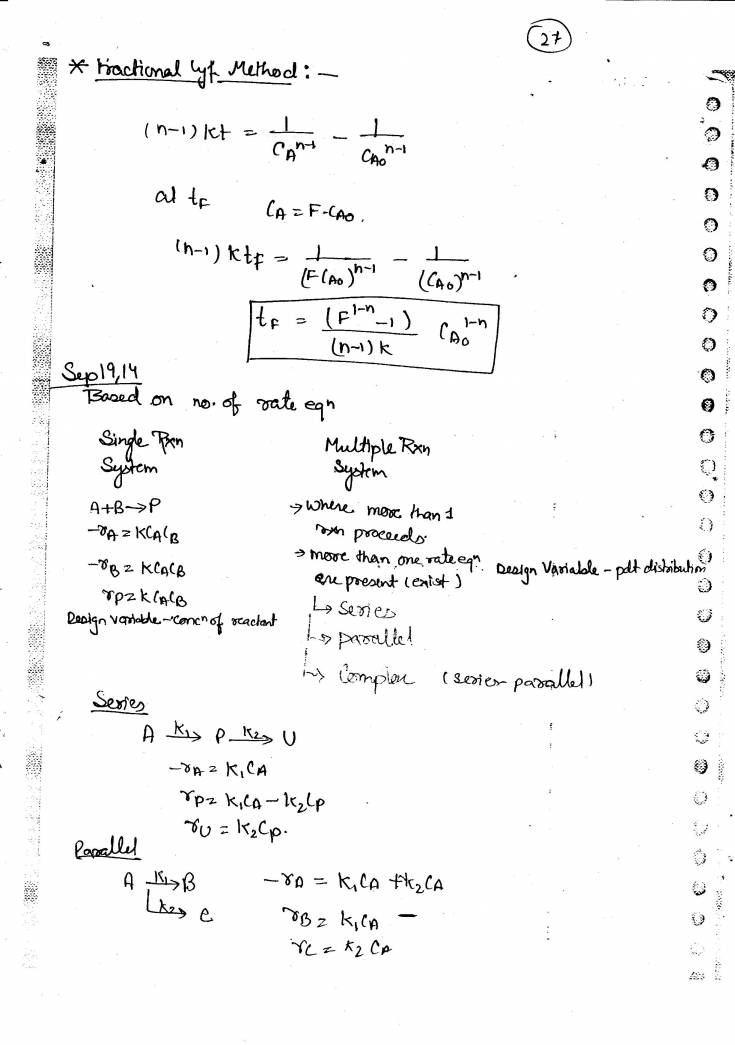 27
* Fractional lyf Method : —
(n-1) kt = 1/C_A^{n-1} - 1/C_{A0}^{n-1}
at t_F C_A = F·C_{A0}.
(n-1) k t_F = 1/(F C_{A0})^{n-1} - 1/(C_{A0})^{n-1}
t_F = (F^{1-n} - 1)/((n-1) k) C_{A0}^{1-n}
Sep 19, 14
Based on no. of rate eqn
Single Rxn
System
A+B → P
-r_A = K C_A C_B
-r_B = K C_A C_B
r_P = K C_A C_B
Design variable - concn of reactant
Multiple Rxn
System
→ Where more than 1
rxn proceeds.
→ more than one rate eqn.
are present (exist)
Design Variable - pdt distribution
↳ Series
↳ parallel
↳ Complex (series parallel)
Series
A —K_1→ P —K_2→ U
-r_A = K_1 C_A
r_P = K_1 C_A - K_2 C_P
r_U = K_2 C_P.
Parallel
A —K_1→ B
↳ k_2 → C
-r_A = K_1 C_A + K_2 C_A
r_B = K_1 C_A —
r_C = K_2 C_A